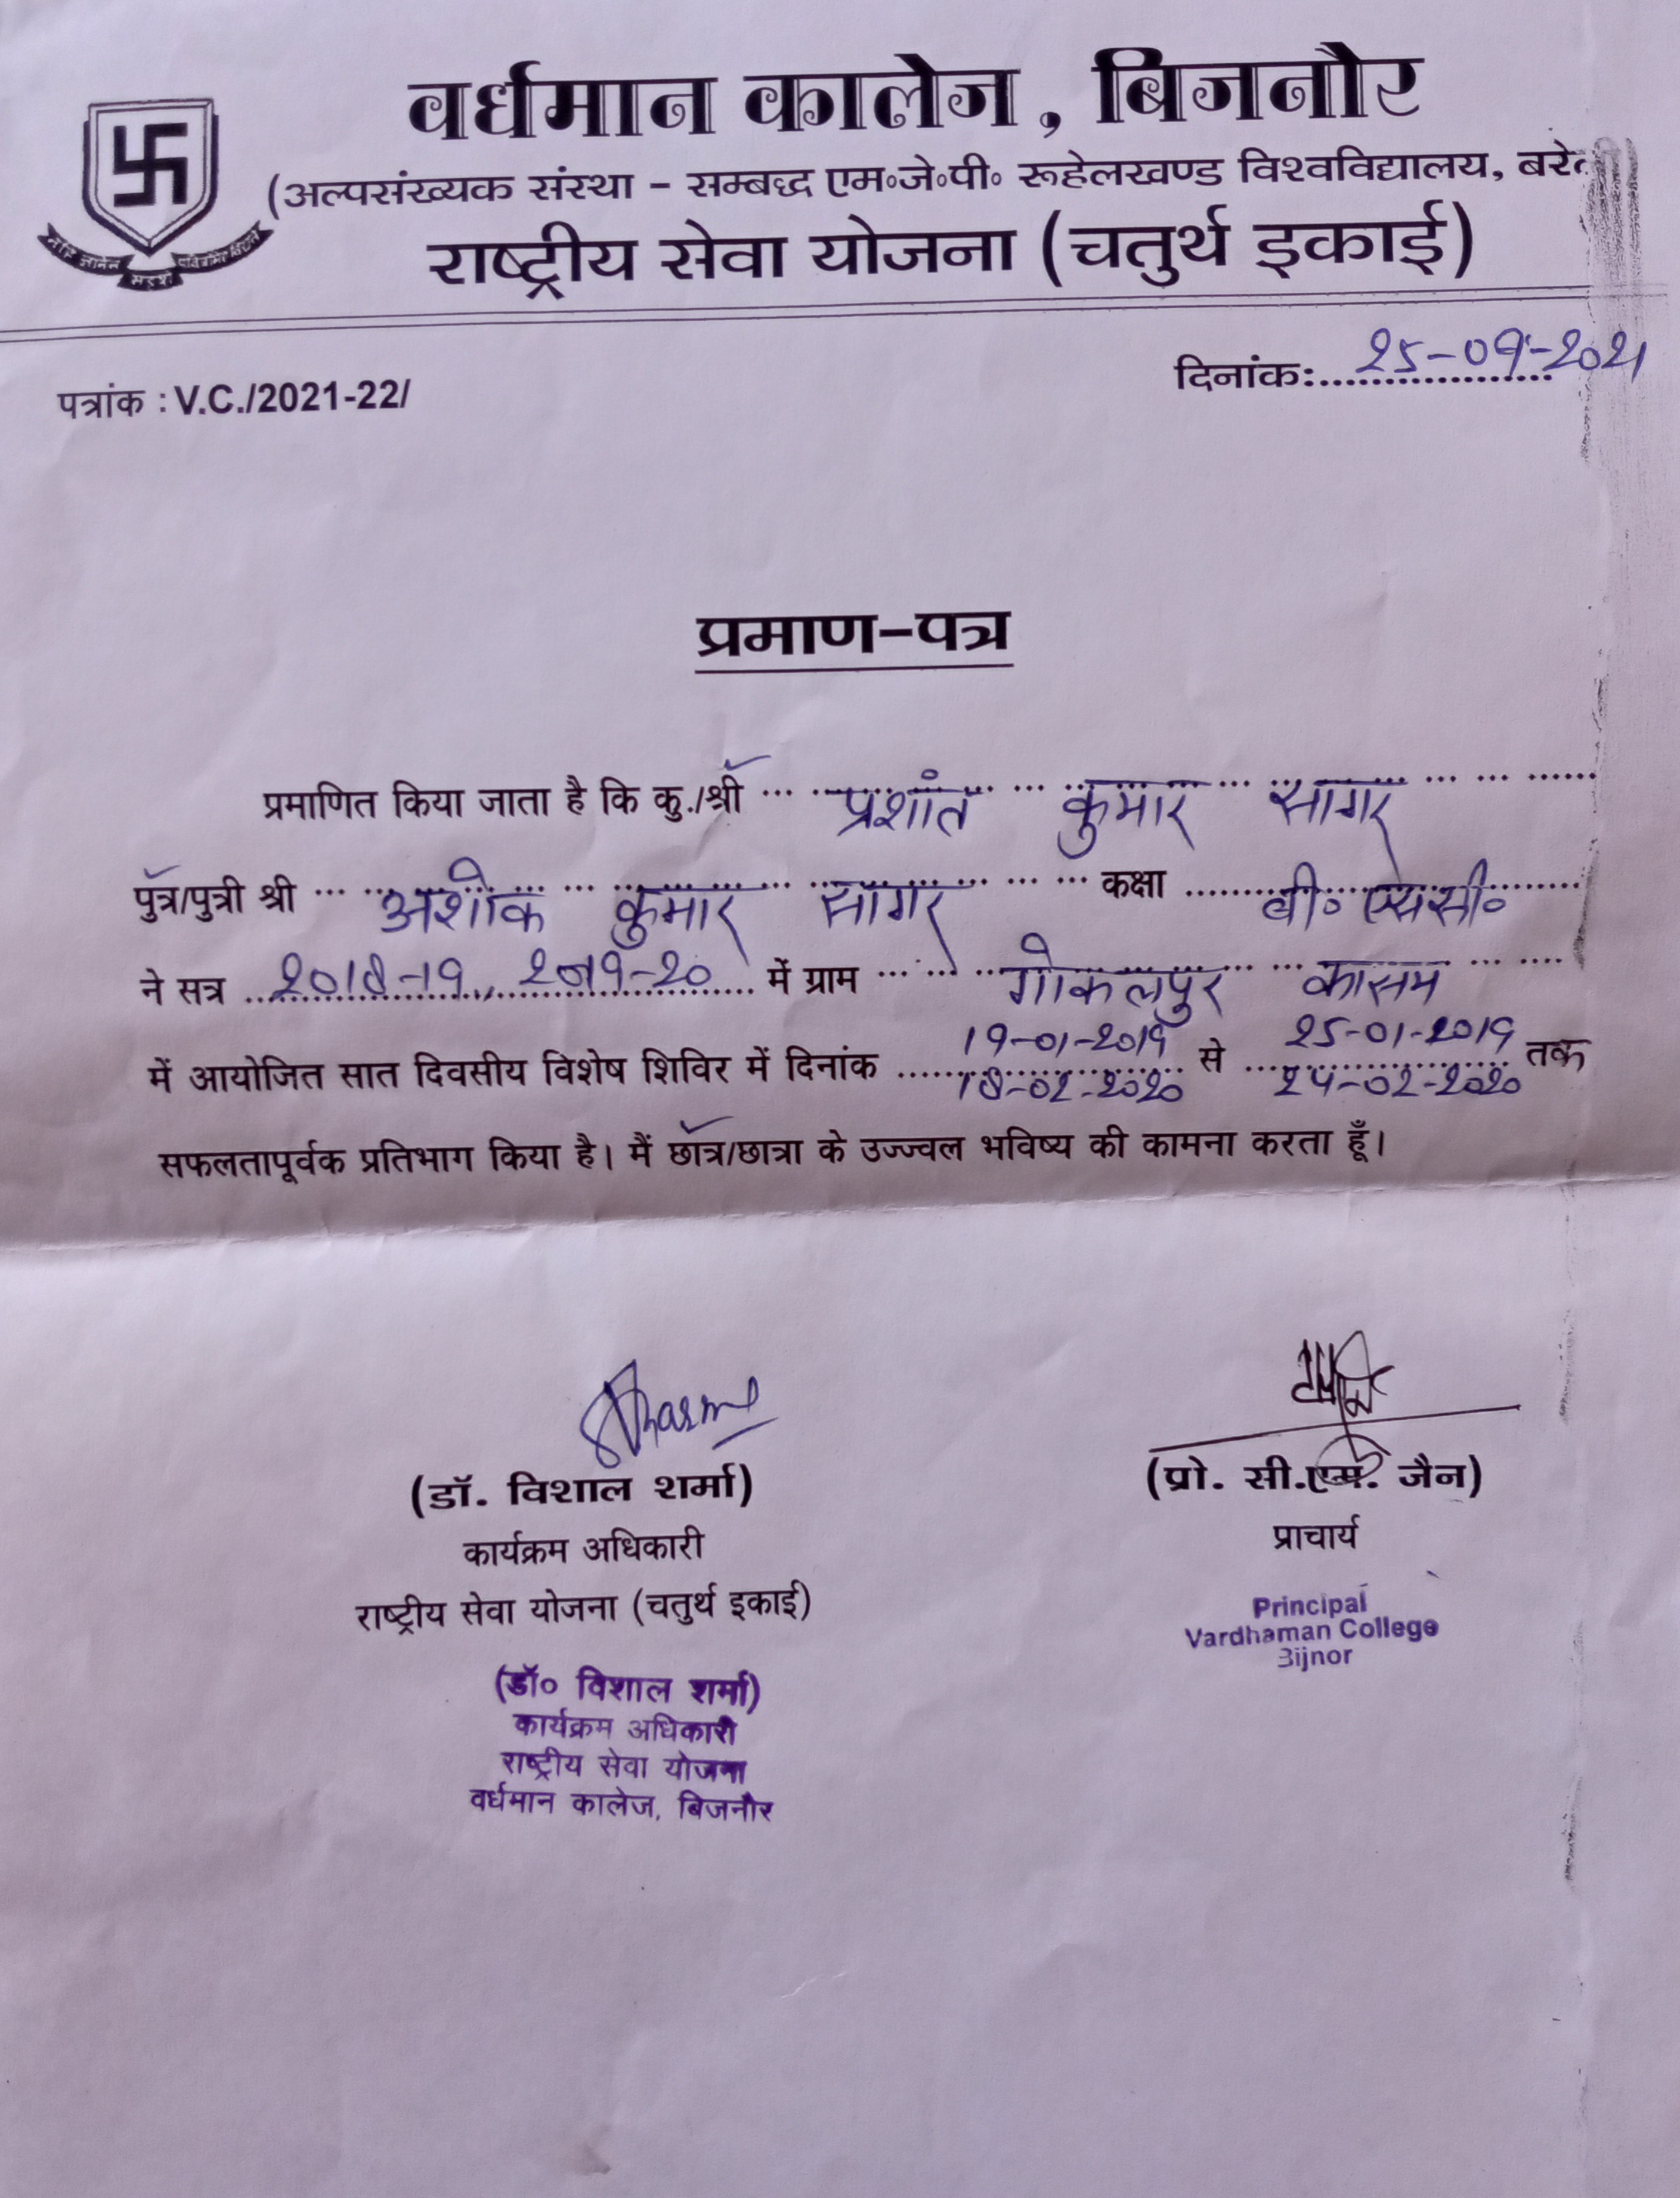 वर्धमान कालेज, बिजनौर
(अल्पसंख्यक संस्था - सम्बद्ध एम॰जे॰पी॰ रूहेलखण्ड विश्वविद्यालय, बरेली)
राष्ट्रीय सेवा योजना (चतुर्थ इकाई)
पत्रांक : V.C./2021-22/
दिनांक: 25-09-2021
प्रमाण-पत्र
प्रमाणित किया जाता है कि कु./श्री प्रशांत कुमार सागर
पुत्र/पुत्री श्री अशोक कुमार सागर कक्षा बी॰ एससी॰
ने सत्र 2018-19, 2019-20 में ग्राम गोकलपुर कासम
19-01-2019 25-01-2019
में आयोजित सात दिवसीय विशेष शिविर में दिनांक से तक
18-02-2020 24-02-2020
सफलतापूर्वक प्रतिभाग किया है। मैं छात्र/छात्रा के उज्ज्वल भविष्य की कामना करता हूँ।
Sharma
(डॉ. विशाल शर्मा)
कार्यक्रम अधिकारी
राष्ट्रीय सेवा योजना (चतुर्थ इकाई)
(डॉ० विशाल शर्मा)
कार्यक्रम अधिकारी
राष्ट्रीय सेवा योजना
वर्धमान कालेज, बिजनौर
(प्रो. सी.एम. जैन)
प्राचार्य
Principal
Vardhaman College
Bijnor